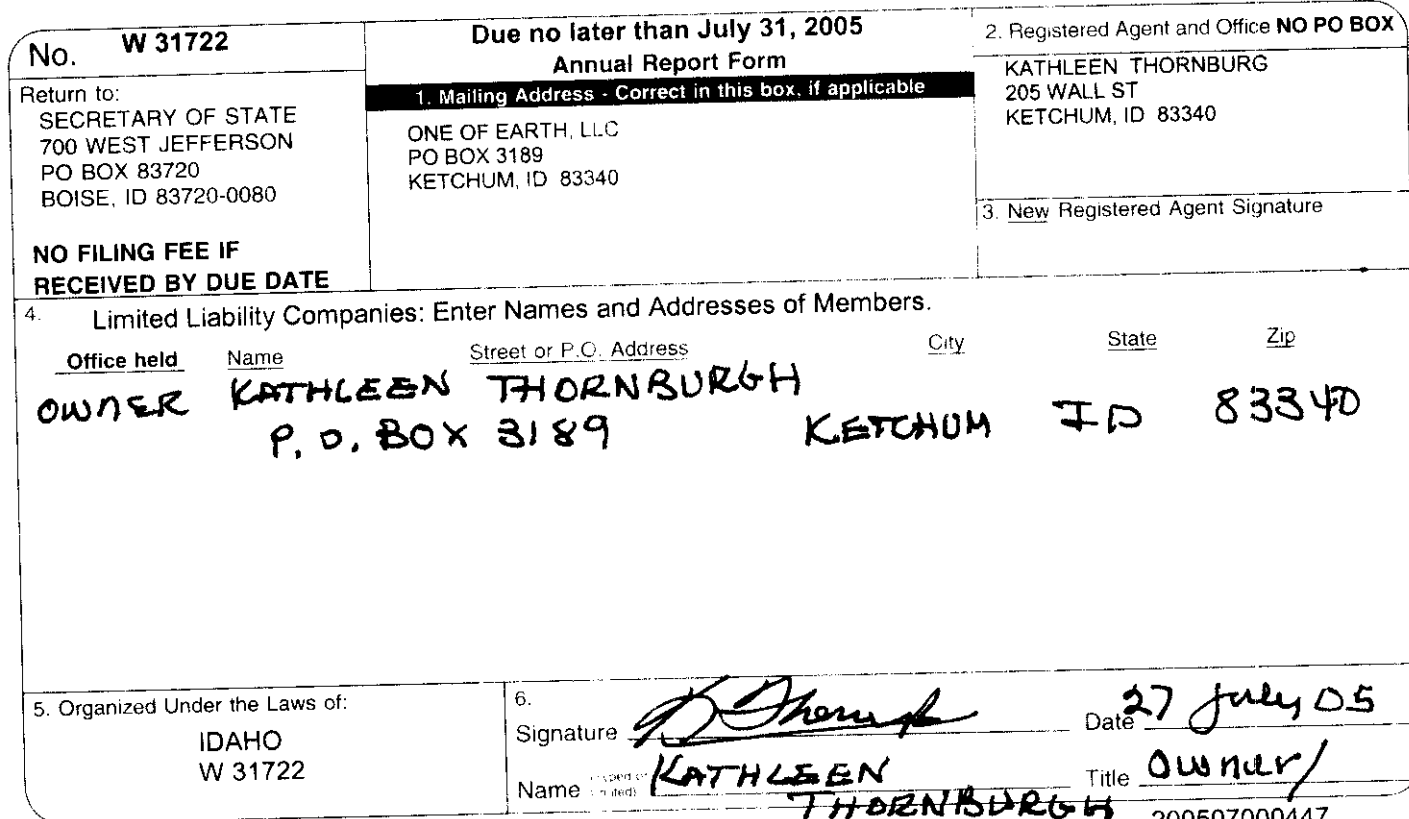 No. W 31722
Return to:
SECRETARY OF STATE
700 WEST JEFFERSON
PO BOX 83720
BOISE, ID 83720-0080
NO FILING FEE IF
RECEIVED BY DUE DATE
Due no later than July 31, 2005
Annual Report Form
1. Mailing Address - Correct in this box, if applicable
ONE OF EARTH, LLC
PO BOX 3189
KETCHUM, ID 83340
2. Registered Agent and Office NO PO BOX
KATHLEEN THORNBURG
205 WALL ST
KETCHUM, ID 83340
3. New Registered Agent Signature
4. Limited Liability Companies: Enter Names and Addresses of Members.
Office held Name Street or P.O. Address City State Zip
OWNER KATHLEEN THORNBURGH
P.O. BOX 3189 KETCHUM ID 83340
5. Organized Under the Laws of:
IDAHO
W 31722
6.
Signature Date 27 July 05
Name KATHLEEN Title Owner
THORNBURGH 200507000447